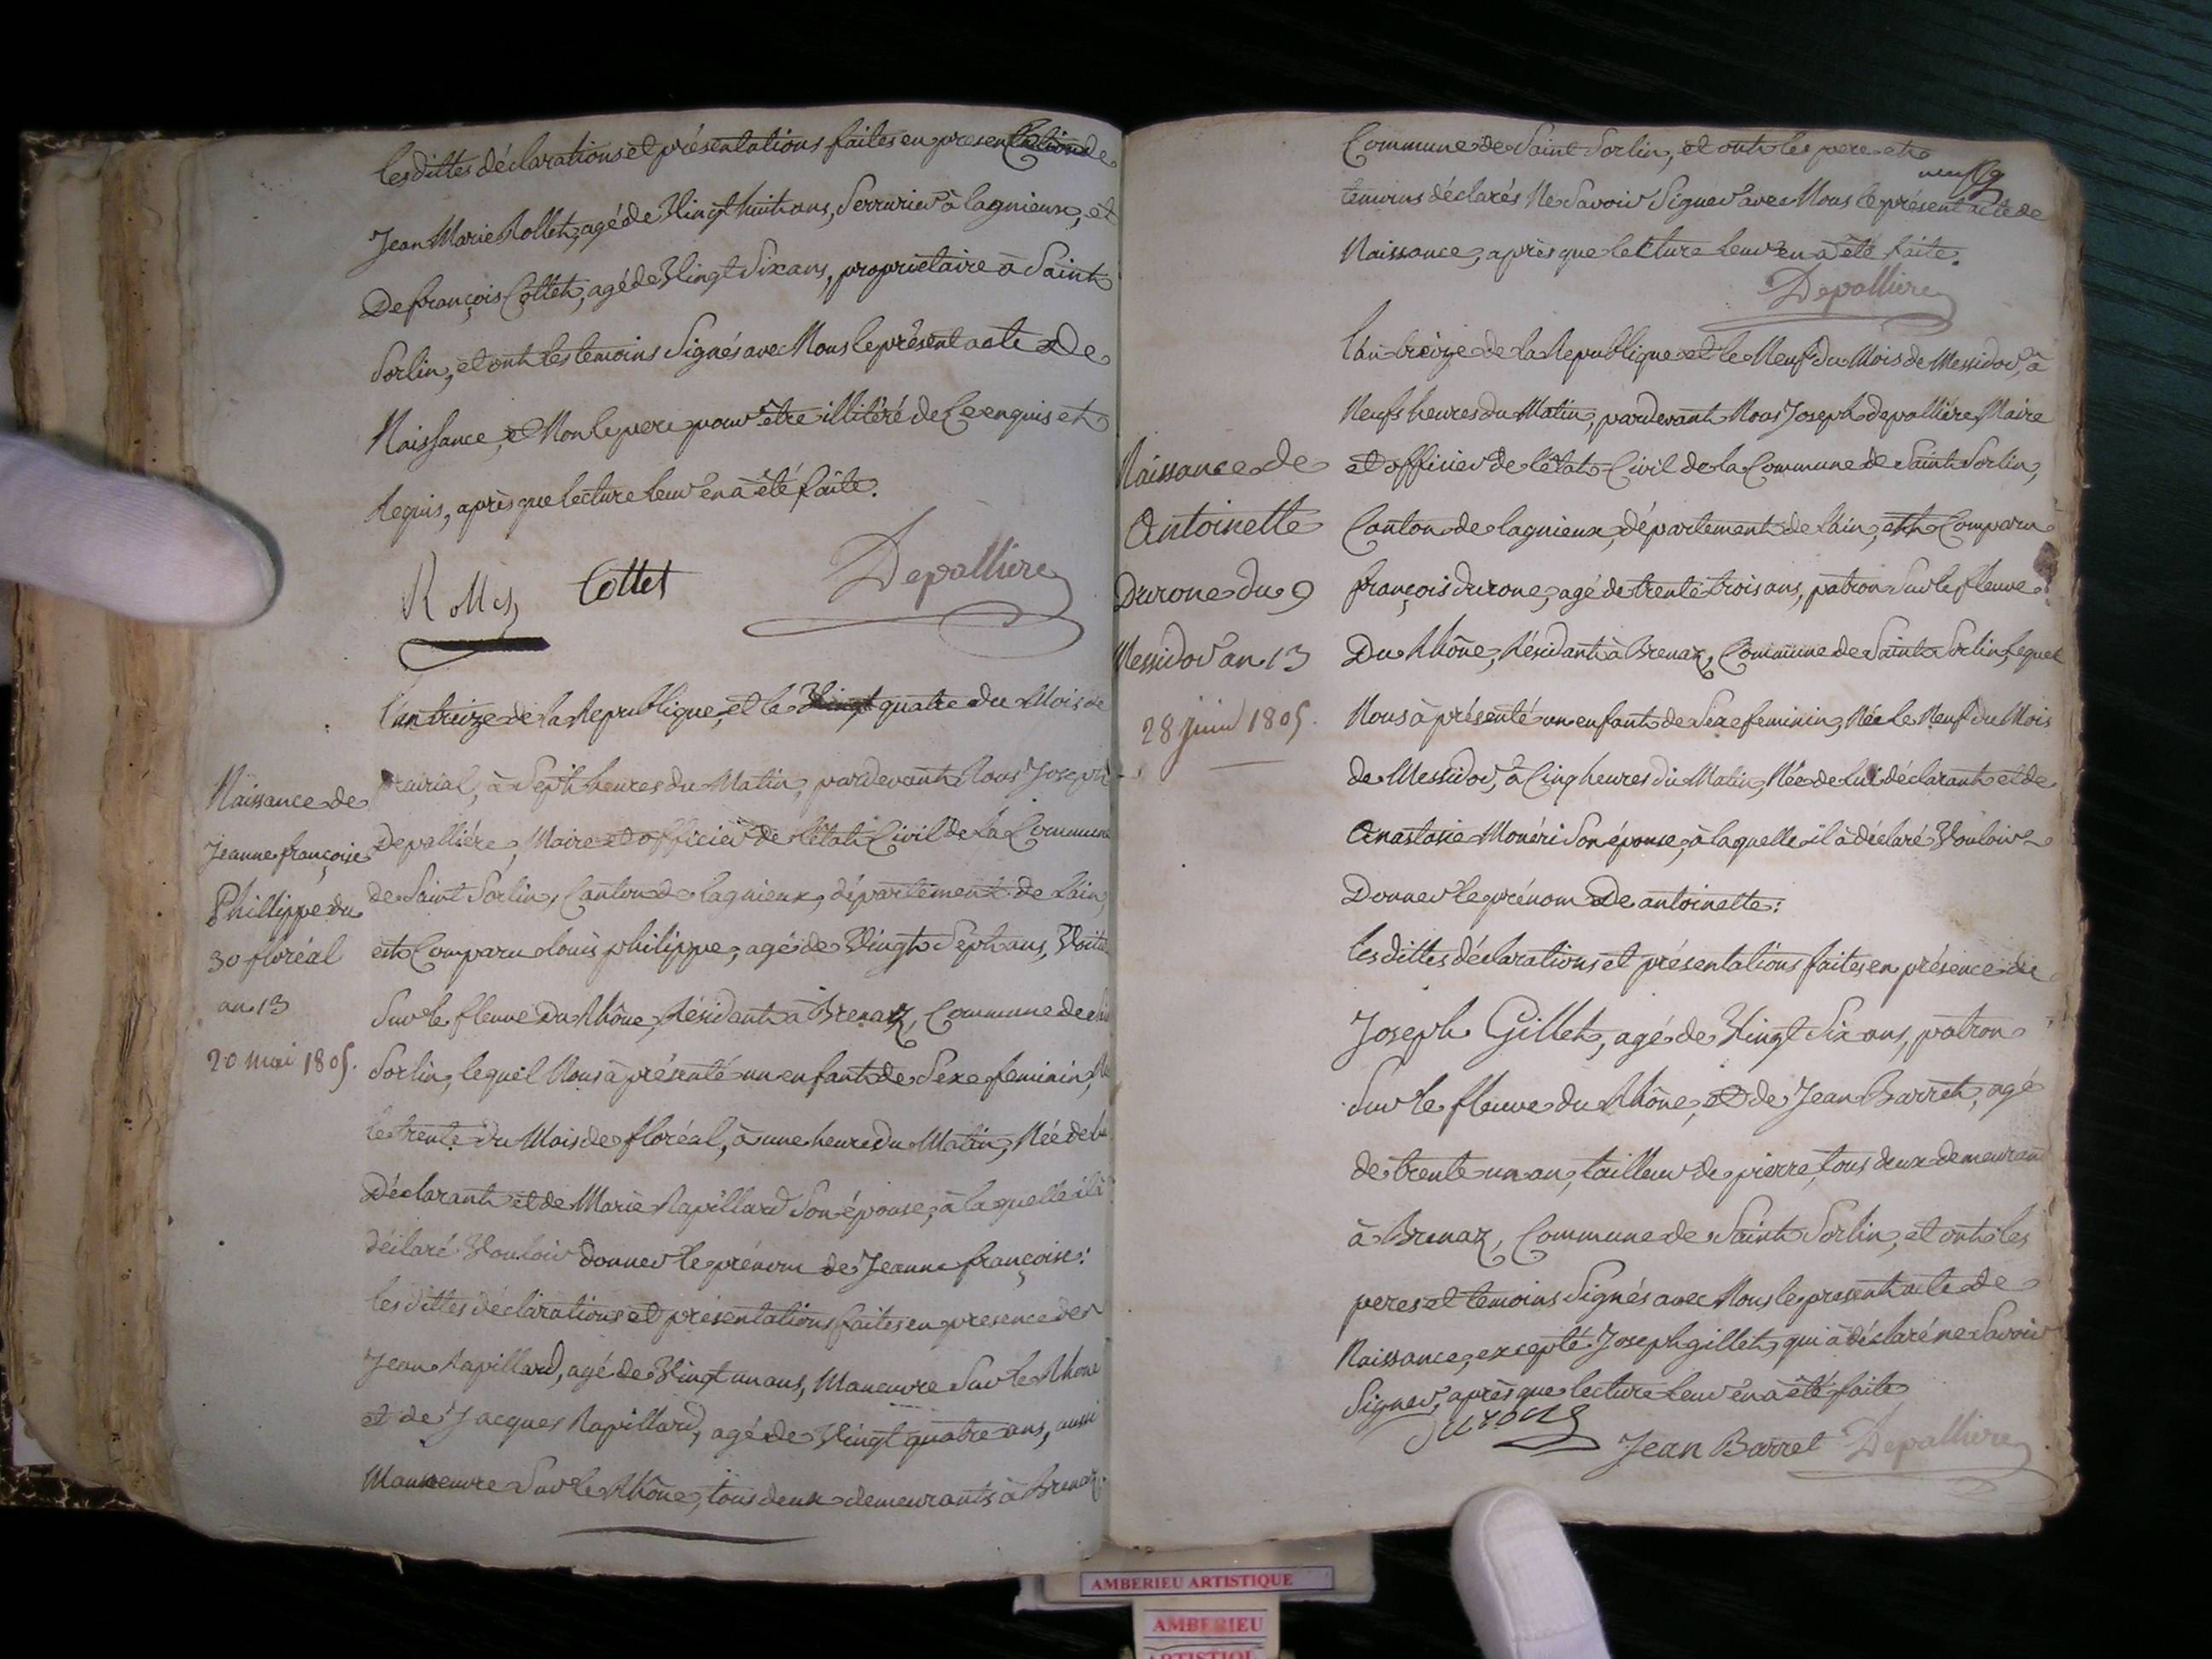 les dittes déclarations et présentations faites en presentation de
Jean Marie Rollet, agé de Vingt huit ans, Serrurier à lagnieux, et
De françois Collet, agé de Vingt Six ans, proprietaire à Saint
Sorlin, et ont les temoins Signés avec Nous le présent acte de
Naissance, et Non le pere pour être illitéré de Ce enquis et
Requis, après que lecture leur en à été faite.
Rollet Collet Depalliere
l'an treize de la Republique, et le Vingt quatre du Mois de
Naissance de
Jeanne françoise
Phillippe du
30 floréal
an 13
20 mai 1805.
Prairial, à Sept heures du Matin, pardevant Nous Joseph
Depalliére, Maire et officier de l'état Civil de la Commune
de Saint Sorlin, Canton de lagnieux, département de l'ain,
est Comparu louis philippe, agé de Vingt Sept ans,
Sur le fleuve du Rhône, Résidant à Brenaz, Commune de
Sorlin, lequel Nous à présenté un enfant de Sexe feminin,
le trente du Mois de floréal, à une heure du Matin, Née de
Déclarant et de Marie Rapillard Son épouse, à laquelle il à
déclaré Vouloir donner le prénom de Jeanne françoise:
les dittes déclarations et présentations faites en presence de
Jean Rapillard, agé de Vingt un ans, Maneuvre Sur le Rhone
et de Jacques Rapillard, agé de Vingt quatre ans, aussi
Maneuvre Sur le Rhône, tous deux demeurants à Brenaz.
Commune de Saint Sorlin, et ont les pere et
neuf 9
temoins déclarés Ne Savoir Signer avec Nous le présent acte de
Naissance, après que lecture leur en à été faite.
Depalliere
l'an treize de la Republique et le Neuf du Mois de Messidor, à
Neufs heures du Matin, pardevant Nous Joseph depalliére Maire
Naissance de
Antoinette
Durone du 9
Messidor an 13
28 juin 1805.
et officier de l'état Civil de la Commune de Saint Sorlin,
Canton de lagnieux, département de l'ain, est Comparu
françois durone, agé de trente trois ans, patron Sur le fleuve
Du Rhône, Résidant à Brenaz, Commune de Saint Sorlin, lequel
Nous à présenté un enfant de Sexe feminin, Née le Neuf du Mois
de Messidor, à Cinq heures du Matin, Née de lui déclarant et de
Anastasie Monéri Son épouse, à laquelle il à déclaré Vouloir
Donner le prénom De antoinette:
les dittes déclarations et présentations faites en présence de
Joseph Gillet, agé de Vingt Six ans, patron
Sur le fleuve du Rhône, et de Jean Barret, agé
de trente un an, tailleur de pierre, tous deux demeurant
à Brenaz, Commune de Saint Sorlin, et ont les
peres et temoins Signés avec Nous le present acte de
Naissance, excepté Joseph gillet, qui à déclaré ne Savoir
Signer, après que lecture leur en à été faite
durone Jean Barret Depalliere
AMBERIEU ARTISTIQUE
AMBERIEU
ARTISTIQUE